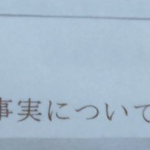 事実について